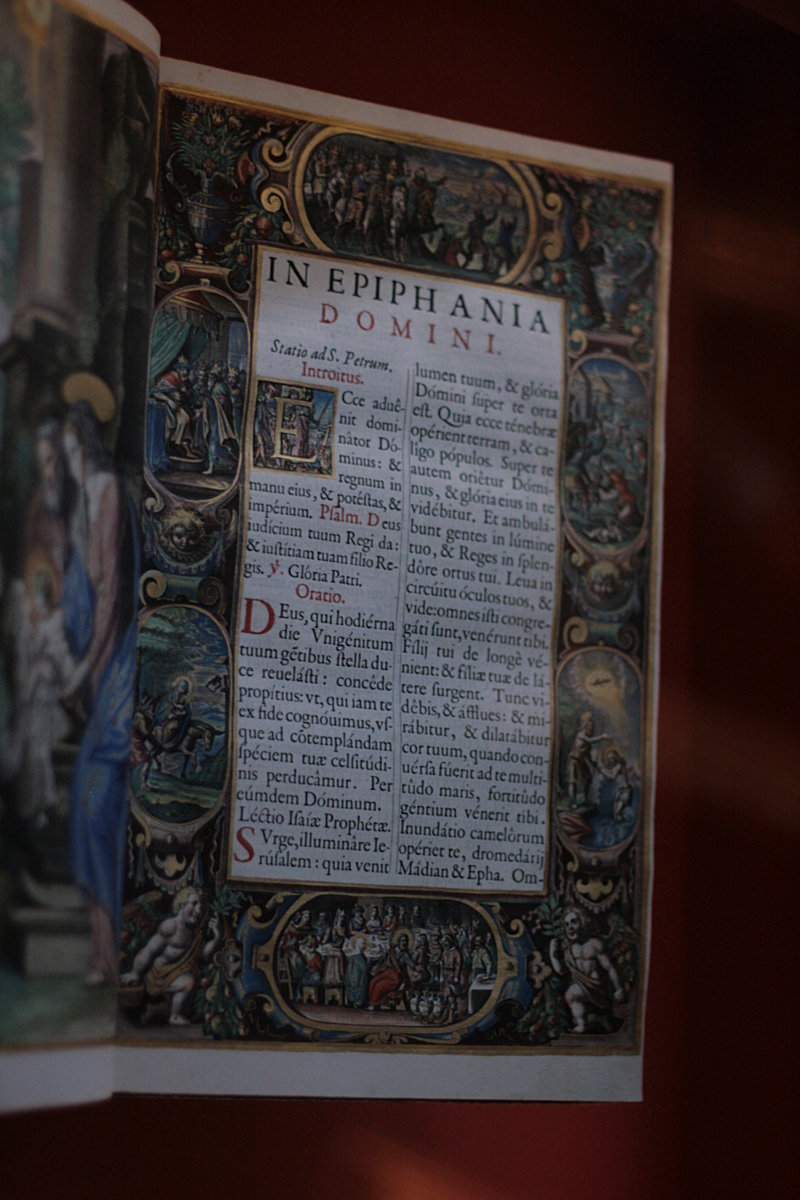 IN EPIPHANIA
DOMINI.
Statio ad S. Petrum.
Introitus.
ECce aduê-
nit domi-
nâtor Dó-
minus: &
regnum in
manu eius, & potéſtas, &
impérium. Pſalm. Deus
iudícium tuum Regi da:
& iuſtítiam tuam fílio Re-
gis. ℣. Glória Patri.
Oratio.
DEus, qui hodiérna
die Vnigénitum
tuum gẽtibus ſtella du-
ce reuelásti: concêde
propítius: vt, qui iam te
ex fide cognóuimus, vſ-
que ad cõtemplándam
ſpéciem tuæ celſitúdi-
nis perducâmur. Per
eúmdem Dóminum.
Léctio Iſaíæ Prophétæ.
SVrge, illuminâre Ie-
rúſalem: quia venit
lumen tuum, & glória
Dómini ſuper te orta
eſt. Quia ecce ténebræ
opérient terram, & ca-
lîgo pópulos. Super te
autem oriêtur Dómi-
nus, & glória eius in te
vidébitur. Et ambulá-
bunt gentes in lúmine
tuo, & Reges in ſplen-
dôre ortus tui. Leua in
circúitu óculos tuos, &
vide: omnes iſti congre-
gáti ſunt, venérunt tibi.
Fílij tui de longè vé-
nient: & fíliæ tuæ de lá-
tere ſurgent. Tunc vi-
dêbis, & áfflues: & mi-
rábitur, & dilatábitur
cor tuum, quando con-
uérſa fúerit ad te multi-
tûdo maris, fortitûdo
géntium vénerit tibi.
Inundátio camelôrum
opériet te, dromedárij
Mádian & Epha. Om-